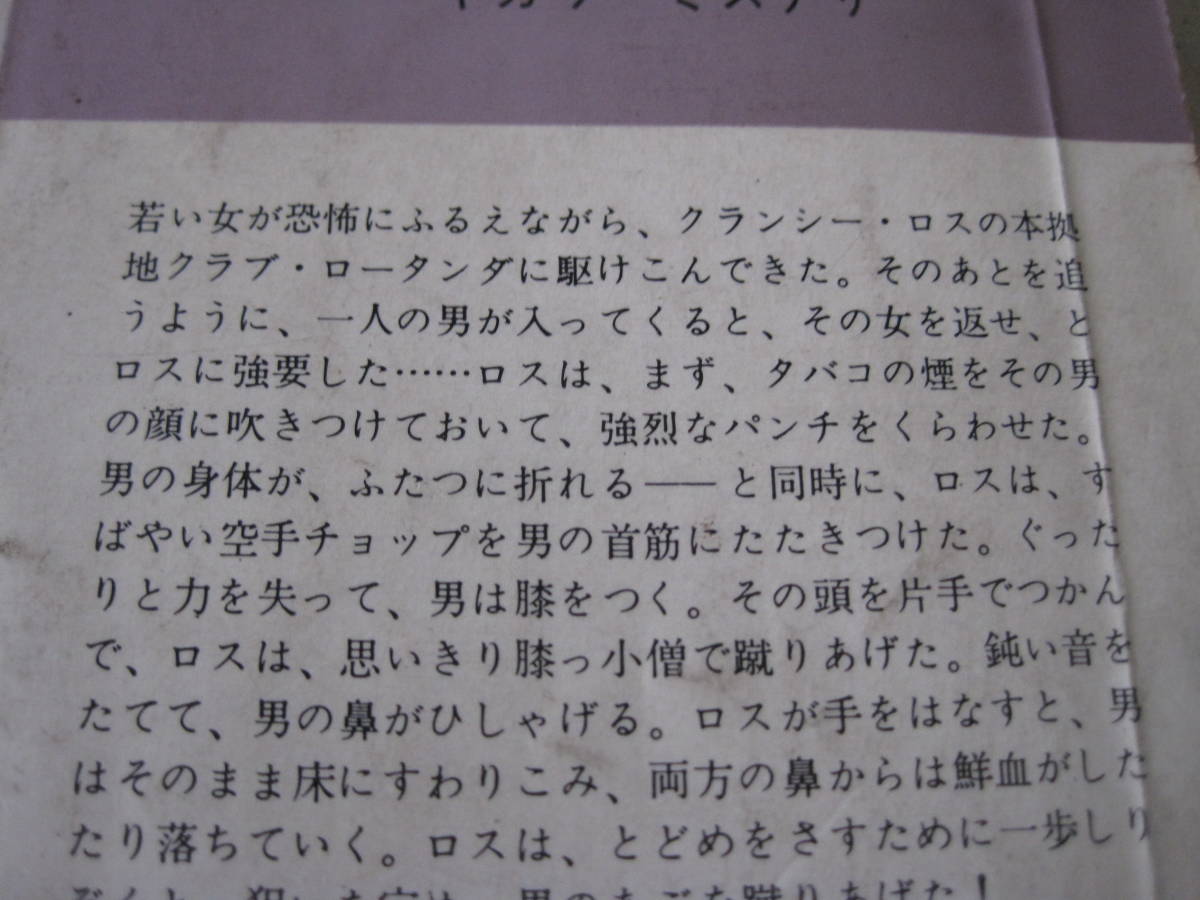 若い女が恐怖にふるえながら、クランシー・ロスの本拠
地クラブ・ロータンダに駆けこんできた。そのあとを追
うように、一人の男が入ってくると、その女を返せ、と
ロスに強要した……ロスは、まず、タバコの煙をその男
の顔に吹きつけておいて、強烈なパンチをくらわせた。
男の身体が、ふたつに折れる――と同時に、ロスは、す
ばやい空手チョップを男の首筋にたたきつけた。ぐった
りと力を失って、男は膝をつく。その頭を片手でつかん
で、ロスは、思いきり膝っ小僧で蹴りあげた。鈍い音を
たてて、男の鼻がひしゃげる。ロスが手をはなすと、男
はそのまま床にすわりこみ、両方の鼻からは鮮血がした
たり落ちていく。ロスは、とどめをさすために一歩しり
ぞくと、狙いを定め、男のあごを蹴りあげた!